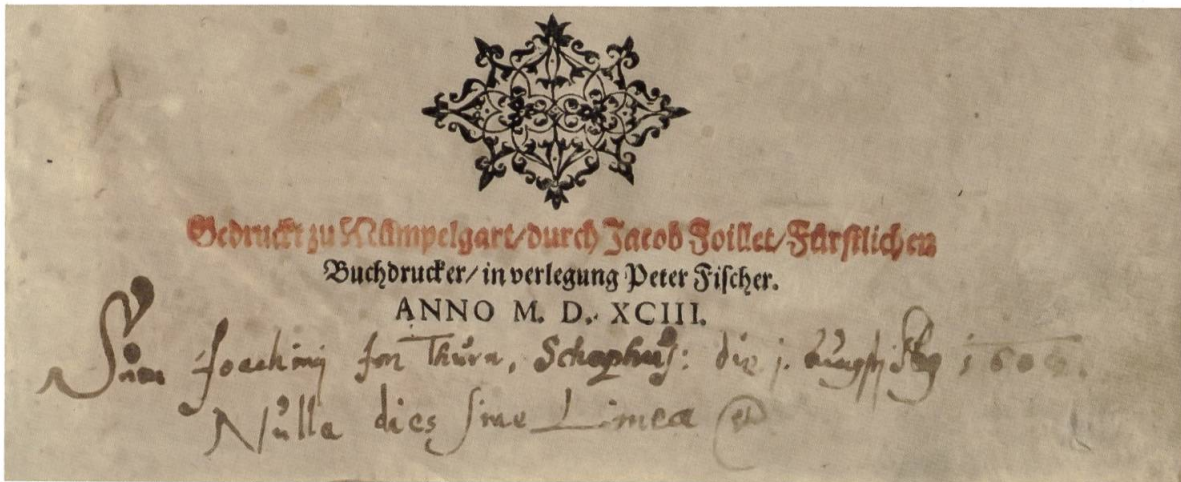 Gedruckt zu Mümpelgart/durch Jacob Foillet/Fürstlichen
Buchdrucker/in verlegung Peter Fischer.
ANNO M. D. XCIII.
Sum Joachimi Im Thurn, Schaphus: die j. Augsti
Nulla dies sine Linea